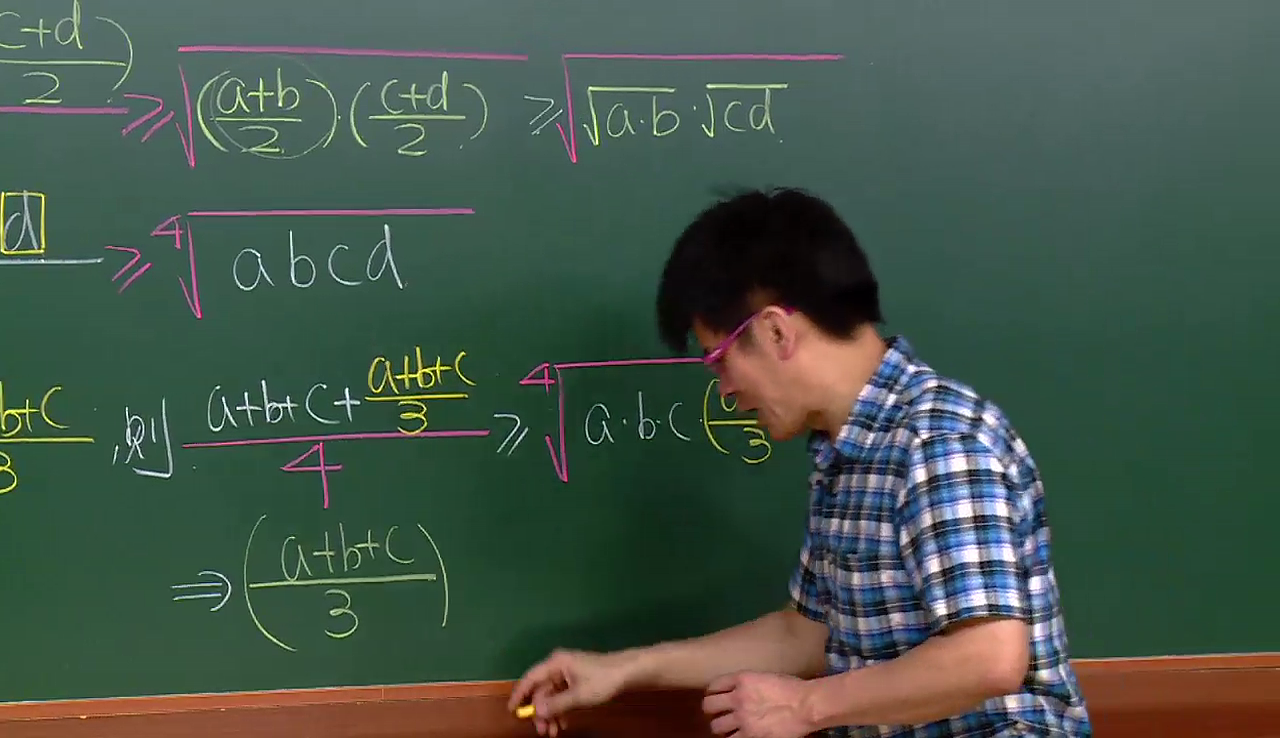 c+d/2) ≥ √((a+b)/2)·((c+d)/2) ≥ √(√(a·b)·√(cd))
d ≥ ⁴√(abcd)
b+c/3 , 則 (a+b+c+(a+b+c)/3)/4 ≥ ⁴√(a·b·c(/3
⇒ ((a+b+c)/3)